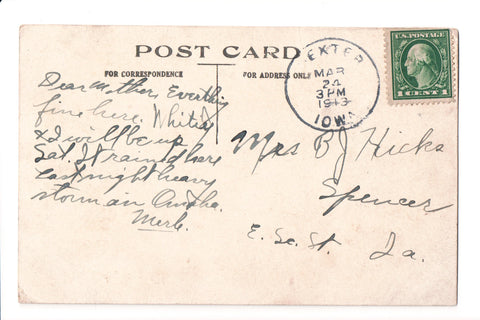 POST CARD
FOR CORRESPONDENCE
FOR ADDRESS ONLY
DEXTER
MAR
24
3PM
1913
IOWA
U.S. POSTAGE
1 CENT 1
Dear Mother: Everthing
fine here. Whitey
& I will be up
Sat. It rained here
last night heavy
storm an Omaha.
Merle.
Mrs B J Hicks
Spencer
E. Se. St. Ia.